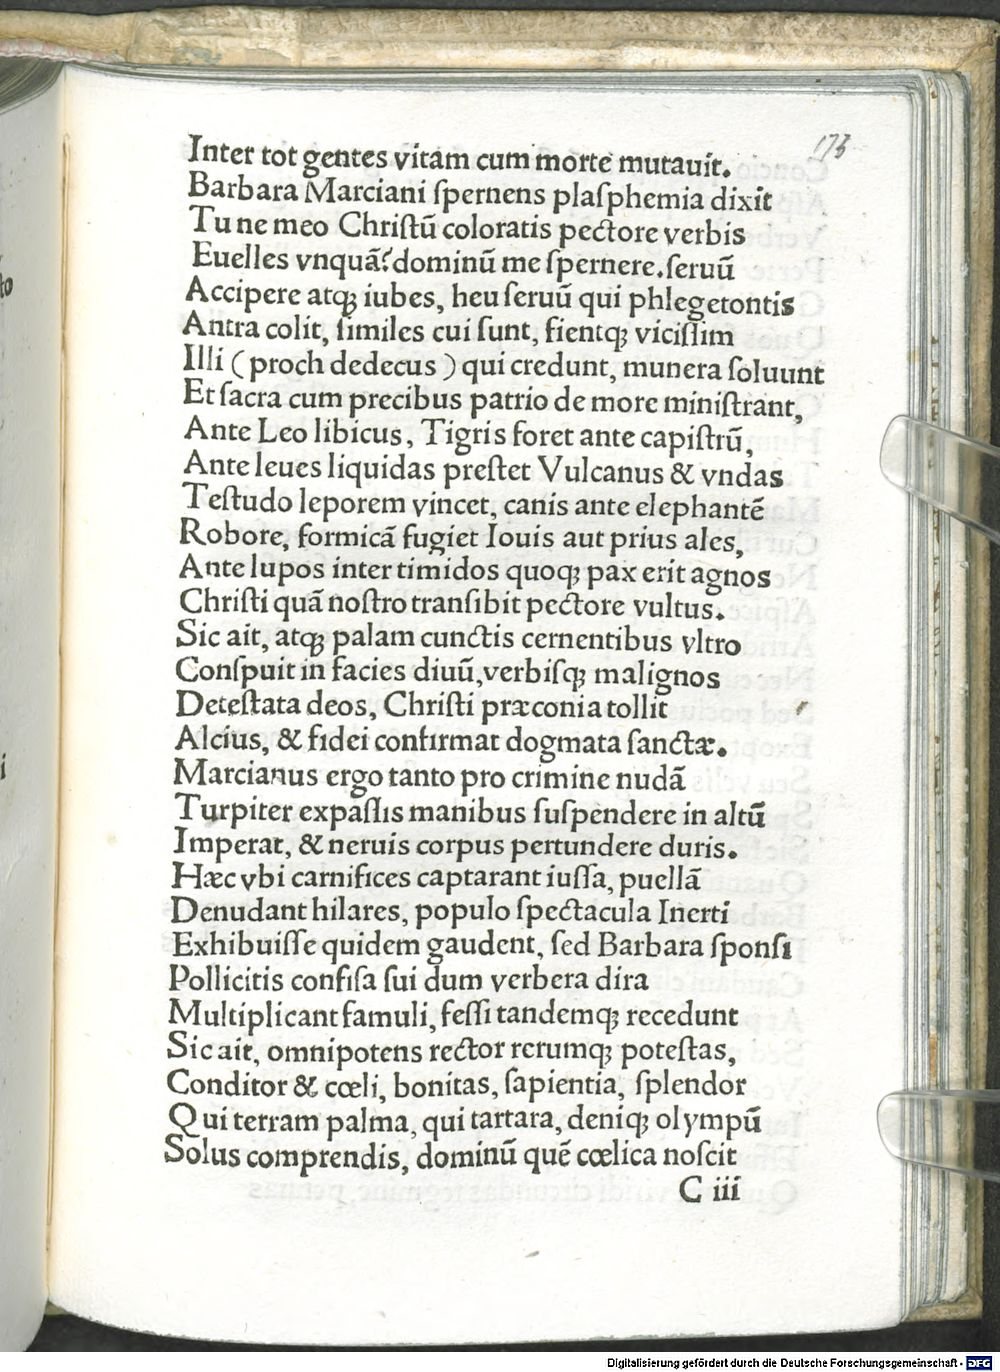 173
Inter tot gentes vitam cum morte mutauit.
Barbara Marciani ſpernens plaſphemia dixit
Tu ne meo Chriſtū coloratis pectore verbis
Euelles vnquā? dominū me ſpernere. ſeruū
Accipere atqꝫ iubes, heu ſeruū qui phlegetontis
Antra colit, ſimiles cui ſunt, fientqꝫ viciſſim
Illi (proch dedecus) qui credunt, munera ſoluunt
Et ſacra cum precibus patrio de more miniſtrant,
Ante Leo libicus, Tigris foret ante capiſtrū,
Ante leues liquidas preſtet Vulcanus & vndas
Teſtudo leporem vincet, canis ante elephantē
Robore, formicā fugiet Iouis aut prius ales,
Ante lupos inter timidos quoqꝫ pax erit agnos
Chriſti quā noſtro tranſibit pectore vultus.
Sic ait, atqꝫ palam cunctis cernentibus vltro
Conſpuit in facies diuū, verbiſqꝫ malignos
Deteſtata deos, Chriſti præconia tollit
Alcius, & fidei confirmat dogmata ſanctæ.
Marcianus ergo tanto pro crimine nudā
Turpiter expaſſis manibus ſuſpendere in altū
Imperat, & neruis corpus pertundere duris.
Hæc vbi carnifices captarant iuſſa, puellā
Denudant hilares, populo ſpectacula Inerti
Exhibuiſſe quidem gaudent, ſed Barbara ſponſi
Pollicitis confiſa ſui dum verbera dira
Multiplicant famuli, feſſi tandemqꝫ recedunt
Sic ait, omnipotens rector rerumqꝫ poteſtas,
Conditor & cœli, bonitas, ſapientia, ſplendor
Qui terram palma, qui tartara, deniqꝫ olympū
Solus comprendis, dominū quē cœlica noſcit
C iii
Digitalisierung gefördert durch die Deutsche Forschungsgemeinschaft - DFG